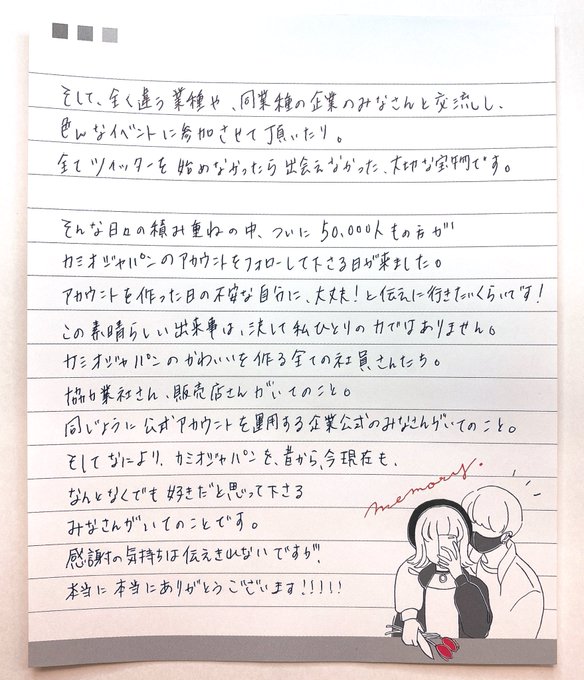 そして、全く違う業種や、同業種の企業のみなさんと交流し、
色んなイベントに参加させて頂いたり。
全てツイッターを始めなかったら出会えなかった、大切な宝物です。
そんな日々の積み重ねの中、ついに50,000人もの方が
カミオジャパンのアカウントをフォローして下さる日が来ました。
アカウントを作った日の不安な自分に、大丈夫!と伝えに行きたいくらいです!
この素晴らしい出来事は、決して私ひとりの力ではありません。
カミオジャパンのかわいいを作る全ての社員さんたち。
協力業社さん、販売店さんがいてのこと。
同じように公式アカウントを運用する企業公式のみなさんがいてのこと。
そしてなにより、カミオジャパンを、昔から、今現在も、
なんとなくでも好きだと思って下さる
みなさんがいてのことです。
感謝の気持ちは伝えきれないですが、
本当に本当にありがとうございます!!!!!
memory.